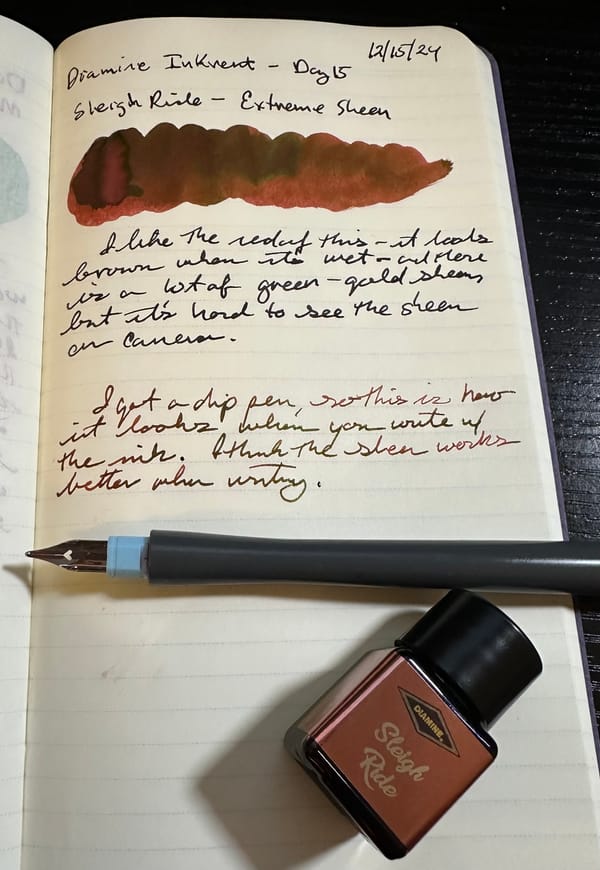 12/15/24
Diamine Inkvent - Day 15
Sleigh Ride - Extreme Sheen
I like the red of this - it looks
brown when it's wet - and there
is a lot of green-gold sheen,
but it's hard to see the sheen
on camera.
I got a dip pen, so this is how
it looks when you write w/
the ink. I think the sheen works
better when writing.
DIAMINE
Sleigh
Ride